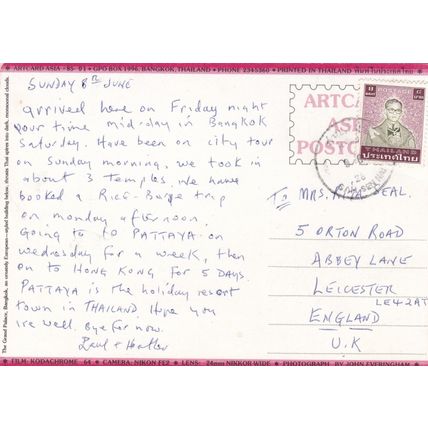 ARTCARD ASIA • 85-01 • GPO BOX 1996, BANGKOK, THAILAND • PHONE 2345360 • PRINTED IN THAILAND พิมพ์ในประเทศไทย
SUNDAY 8TH JUNE
arrived here on Friday night
your time mid-day in Bangkok
Saturday. Have been on city tour
on Sunday morning, we took in
about 3 Temples. We have
booked a Rice-Barge trip
on monday afternoon.
Going to to PATTAYA on
wednesday for a week, then
on to HONG KONG for 5 Days.
PATTAYA is the holiday resort
town in THAILAND. Hope you
are well. Bye for now.
ARTCARD
ASIA
POSTCARD
POSTAGE
THAILAND
ประเทศไทย
TO MRS. NEAL.
5 ORTON ROAD
ABBEY LANE
LEICESTER
LE42AT
ENGLAND
U.K
The Grand Palace, Bangkok, an ornately European-styled building below, thrusts Thai spires into dark, monsoonal clouds.
FILM: KODACHROME 64 • CAMERA: NIKON FE2 • LENS: 24mm NIKKOR WIDE • PHOTOGRAPH BY JOHN EVERINGHAM